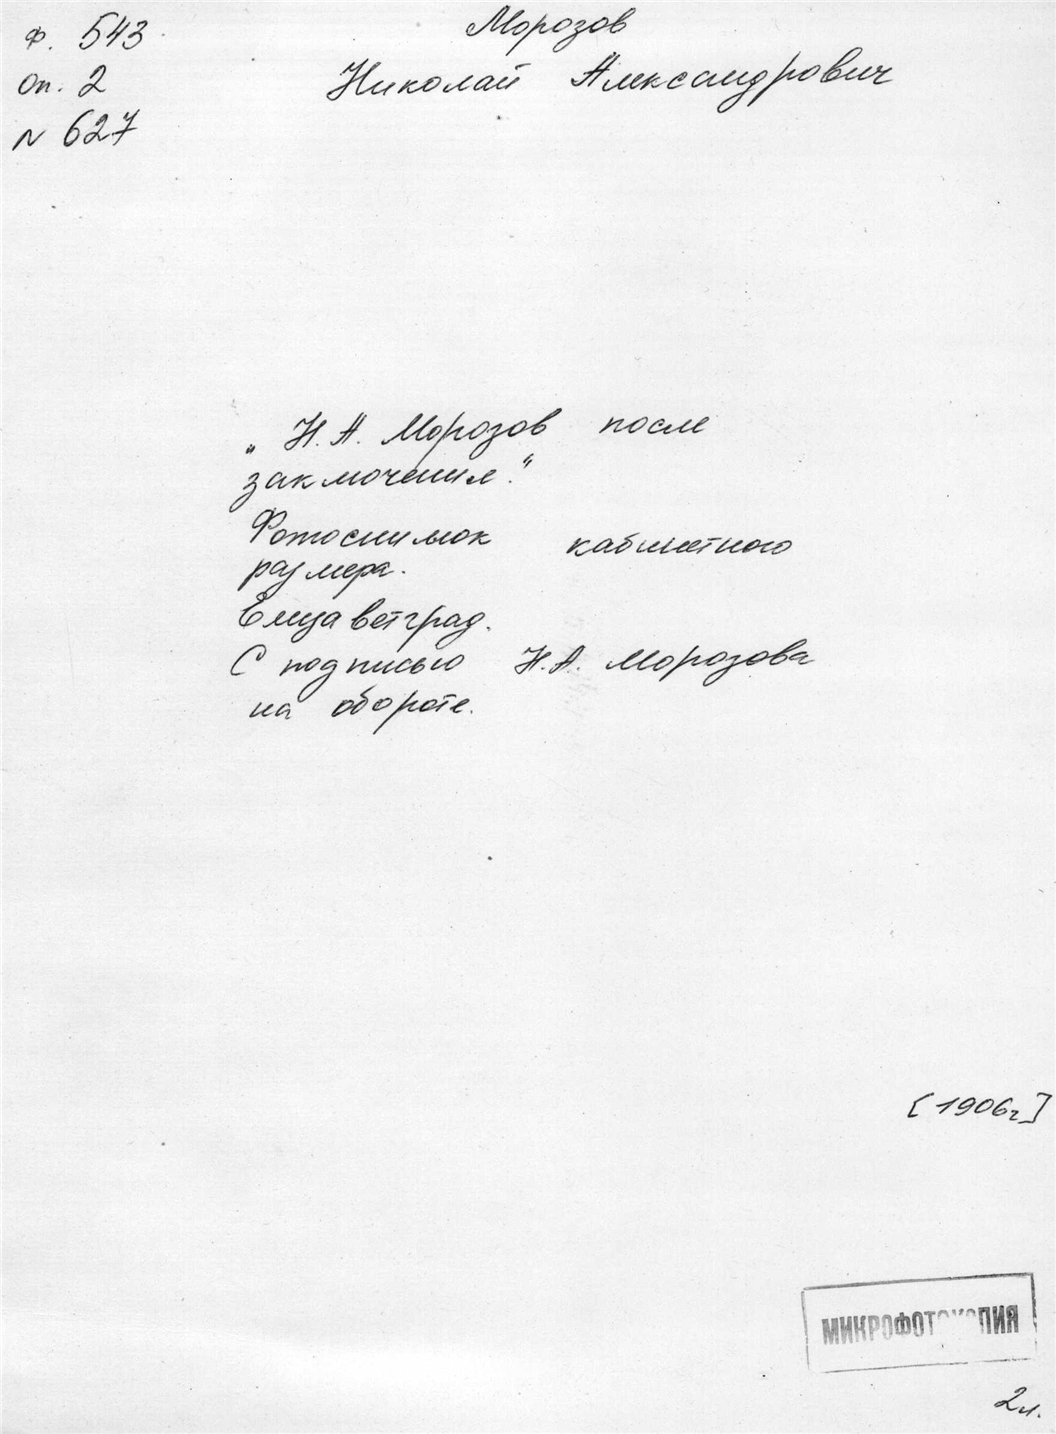 Ф. 543
Оп. 2
N 627
Морозов
Николай Александрович
„Н. А. Морозов после
заключения."
Фотоснимок кабинетного
размера.
Елизаветград.
С подписью Н. А. Морозова
на обороте.
[1906г]
МИКРОФОТОКОПИЯ
2л.